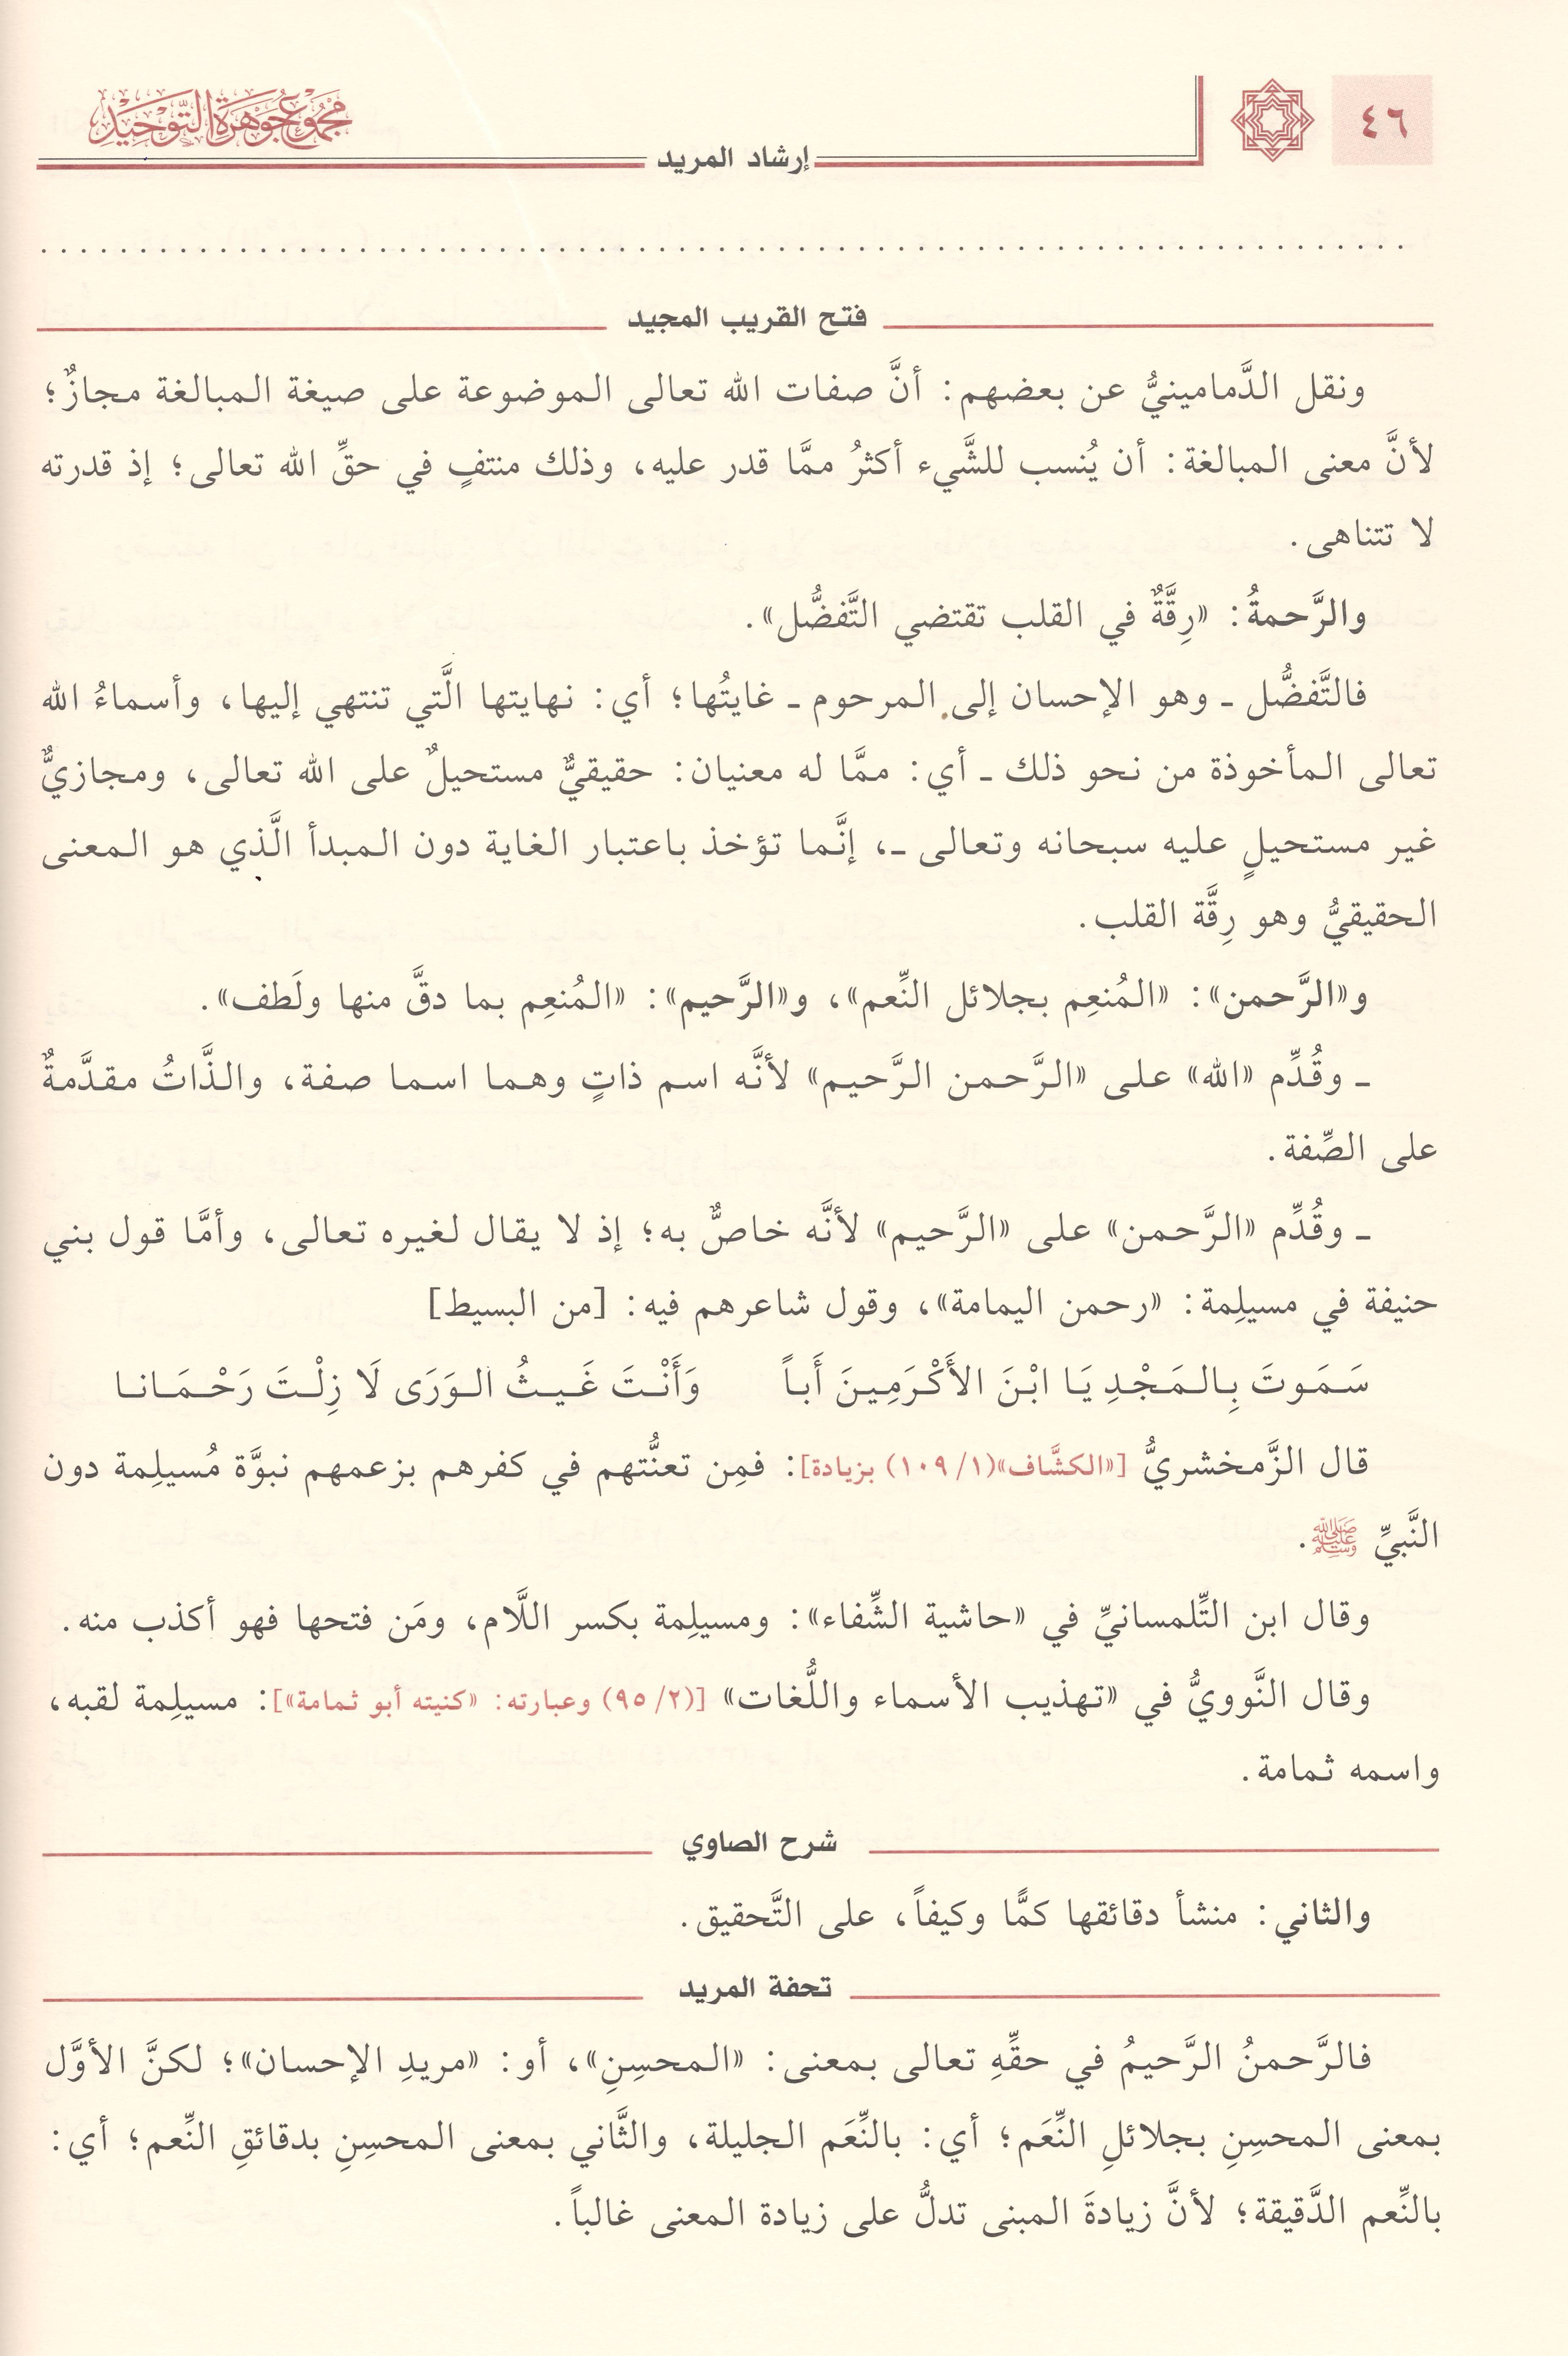 ٤٦
مجموع جوهرة التوحيد
إرشاد المريد
. . . . . . . . . . . . . . . . . . . . . . . . . . . . . . . . . . . . . . . . . . . . . . . . . . . . . . . . . .
فتح القريب المجيد
ونقل الدَّمامينيُّ عن بعضهم: أنَّ صفات الله تعالى الموضوعة على صيغة المبالغة مجازٌ؛
لأنَّ معنى المبالغة: أن يُنسب للشَّيء أكثرُ ممَّا قدر عليه، وذلك منتفٍ في حقِّ الله تعالى؛ إذ قدرته
لا تتناهى.
والرَّحمةُ: «رِقَّةٌ في القلب تقتضي التَّفضُّل».
فالتَّفضُّل ـ وهو الإحسان إلى المرحوم ـ غايتُها؛ أي: نهايتها الَّتي تنتهي إليها، وأسماءُ الله
تعالى المأخوذة من نحو ذلك ـ أي: ممَّا له معنيان: حقيقيٌّ مستحيلٌ على الله تعالى، ومجازيٌّ
غير مستحيلٍ عليه سبحانه وتعالى ـ، إنَّما تؤخذ باعتبار الغاية دون المبدأ الَّذي هو المعنى
الحقيقيُّ وهو رِقَّة القلب.
و«الرَّحمن»: «المُنعِم بجلائل النِّعم»، و«الرَّحيم»: «المُنعِم بما دقَّ منها ولَطف».
ـ وقُدِّم «الله» على «الرَّحمن الرَّحيم» لأنَّه اسم ذاتٍ وهما اسما صفة، والذَّاتُ مقدَّمةٌ
على الصِّفة.
ـ وقُدِّم «الرَّحمن» على «الرَّحيم» لأنَّه خاصٌّ به؛ إذ لا يقال لغيره تعالى، وأمَّا قول بني
حنيفة في مسيلِمة: «رحمن اليمامة»، وقول شاعرهم فيه: [من البسيط]
سَمَوتَ بِالمَجْدِ يَا ابْنَ الأَكْرَمِينَ أَباً وَأَنْتَ غَيثُ الوَرَى لَا زِلْتَ رَحْمَانا
قال الزَّمخشريُّ [«الكشَّاف»(١/ ١٠٩) بزيادة]: فمِن تعنُّتهم في كفرهم بزعمهم نبوَّة مُسيلِمة دون
النَّبيِّ ﷺ.
وقال ابن التِّلمسانيِّ في «حاشية الشِّفاء»: ومسيلِمة بكسر اللَّام، ومَن فتحها فهو أكذب منه.
وقال النَّوويُّ في «تهذيب الأسماء واللُّغات» [(٢/ ٩٥) وعبارته: «كنيته أبو ثمامة»]: مسيلِمة لقبه،
واسمه ثمامة.
شرح الصاوي
والثاني: منشأ دقائقها كمًّا وكيفاً، على التَّحقيق.
تحفة المريد
فالرَّحمنُ الرَّحيمُ في حقِّهِ تعالى بمعنى: «المحسِنِ»، أو: «مريدِ الإحسان»؛ لكنَّ الأوَّل
بمعنى المحسِنِ بجلائلِ النِّعَم؛ أي: بالنِّعَم الجليلة، والثَّاني بمعنى المحسِنِ بدقائقِ النِّعم؛ أي:
بالنِّعم الدَّقيقة؛ لأنَّ زيادةَ المبنى تدلُّ على زيادة المعنى غالباً.